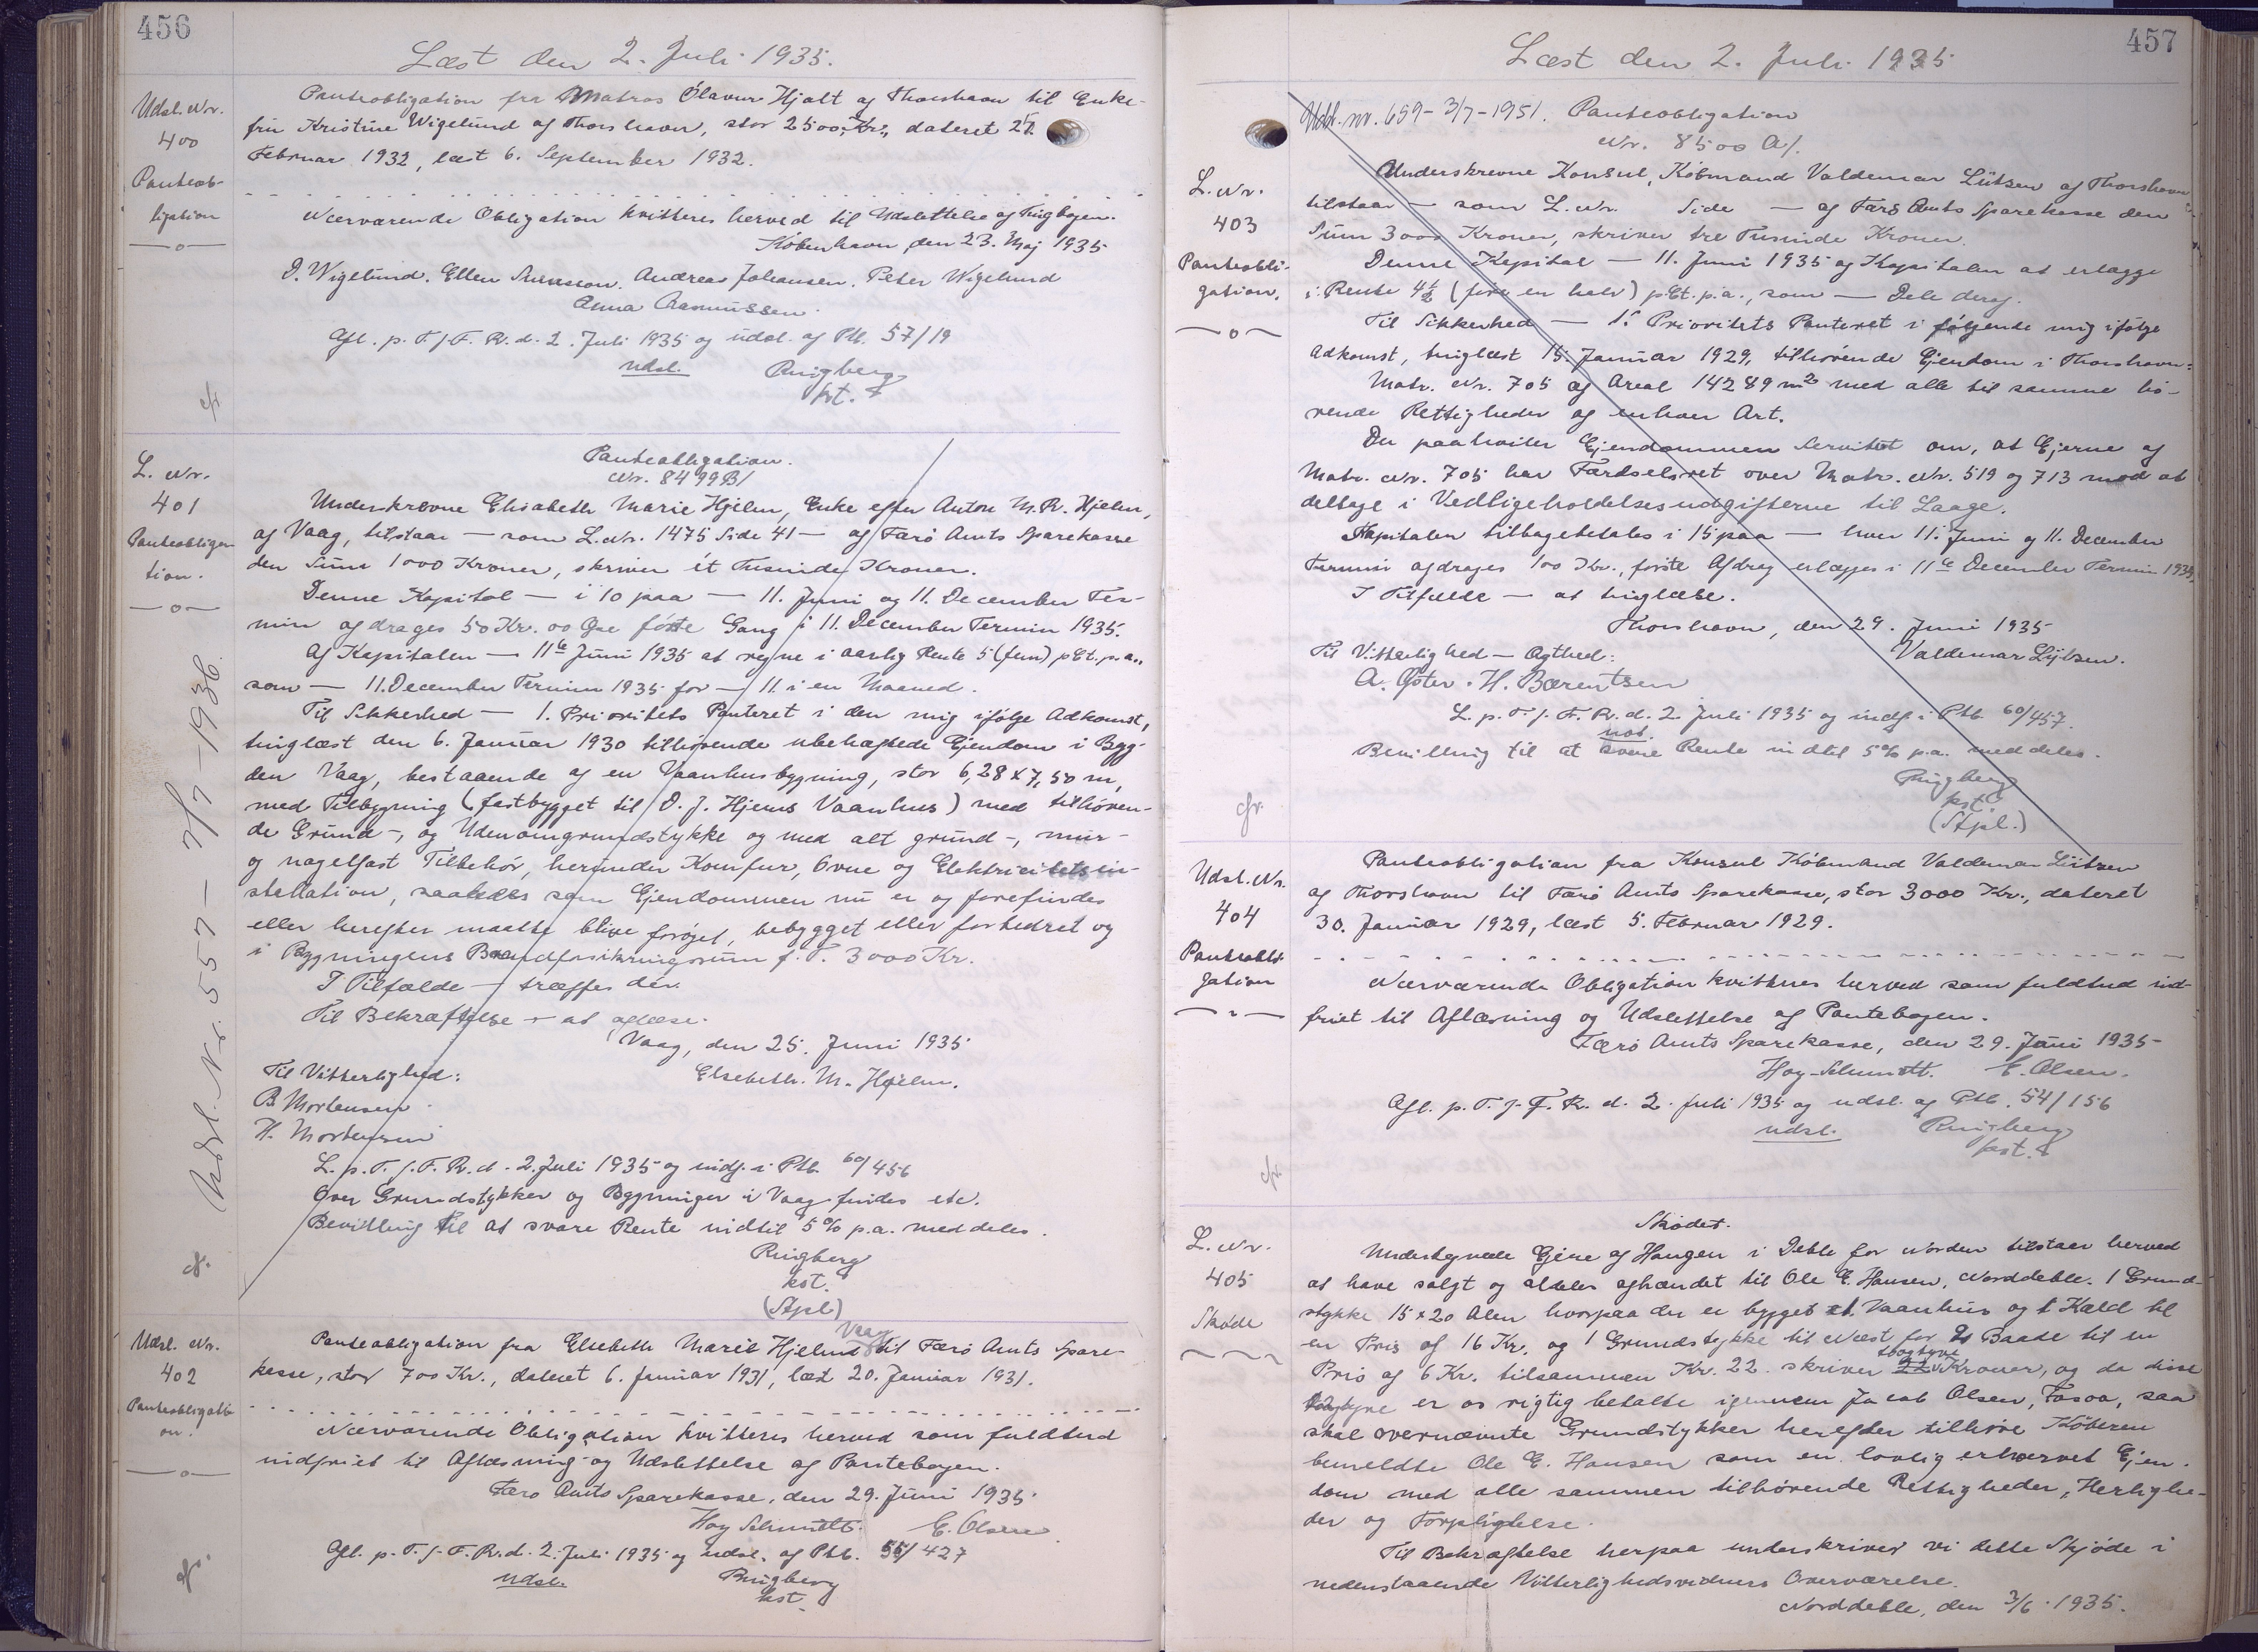 456
Læst den 2. Juli 1935.
Udsl. Nr.
400
Panteob-
ligation
Panteobligation fra Matros Olavur Hjalt af Thorshavn til Enke-
frue Kristine Wigelund af Thorshavn, stor 2500,- Kr., dateret 27.
Februar 1932, læst 6. September 1932.
Nærværende Obligation kvitteres herved til Udslettelse af Tingbogen.
København, den 23. Maj 1935
D. Wigelund. Ellen. Andrea Johansen. Peter Wigelund
Anna Rasmussen.
Afl. p. T. f. F. R. d. 2. Juli 1935 og udsl. af Ptb. 57/19
udsl.
Ringberg
kst.
L. Nr.
401
Panteobliga-
tion.
Udsl. Nr. 557 - 7/7 - 1936.
Panteobligation.
Nr. 8499 B/
Underskrevne Elisabeth Marie Hjelm, Enke efter Anton M. R. Hjelm,
af Vaag, tilstaar — som L. Nr. 1475 Side 41 — af Færø Amts Sparekasse
den Sum 1000 Kroner, skriver ét Tusinde Kroner.
Denne Kapital — i 10 paa — 11. Juni og 11. December Ter-
min afdrages 50 Kr. 00 Øre første Gang i 11. December Termin 1935.
Af Kapitalen — 11te Juni 1935 at regne i aarlig Rente 5 (fem) pCt. p.a.,
som — 11. December Termin 1935 for — 11. i en Maaned.
Til Sikkerhed — 1. Prioritets Panteret i den mig ifølge Adkomst,
tinglæst den 6. Januar 1930 tilhørende ubehæftede Ejendom i Byg-
den Vaag, bestaaende af en Vaanhusbygning, stor 6,28 x 7,50 m,
med Tilbygning (fastbygget til D. J. Hjelms Vaanhus) med tilhøren-
de Grund-, og Udenomgrundstykke og med alt grund-, mur-
og nagelfast Tilbehør, herunder Komfur, Ovne og Elektricitetsin-
stallation, saaledes som Ejendommen nu er og forefindes
eller herefter maatte blive forøget, bebygget eller forbedret og
i Bygningens Brandforsikringssum p. T. 3000 Kr.
I Tilfælde — træffes der.
Til Bekræftelse — at aflæse.
Vaag, den 25. Juni 1935
Til Vitterlighed:
Elsebeth. M. Hjelm.
B. Mortensen.
H. Mortensen
L. p. T. f. F. R. d. 2. Juli 1935 og indf. i Ptb. 60/456
Over Grundstykker og Bygninger i Vaag findes etc.
Bevilling til at svare Rente indtil 5% p.a. meddeles.
Ringberg
kst.
(Stpl.)
Udsl. Nr.
402
Panteobligati-
on.
Panteobligation fra Elsebeth Marie Hjelm Vaag til Færø Amts Spare-
kasse, stor 700 Kr., dateret 6. Januar 1931, læst 20. Januar 1931.
Nærværende Obligation kvitteres herved som fuldtud
indfriet til Aflæsning og Udslettelse af Pantebogen.
Færø Amts Sparekasse, den 29. Juni 1935.
Hoy Schmidt. E. Olsen
Afl. p. T. f. F. R. d. 2. Juli 1935 og udsl. af Ptb. 55/427
udsl.
Ringberg
kst.
457
Læst den 2. Juli 1935
Udsl. nr. 659 - 3/7 - 1951. Panteobligation
Nr. 8500 A/.
L. Nr.
403
Panteobli-
gation.
Underskrevne Konsul, Købmand Valdemar Lützen af Thorshavn
tilstaar — som L. Nr. Side — af Færø Amts Sparekasse den
Sum 3000 Kroner, skriver tre Tusinde Kroner.
Denne Kapital — 11. Juni 1935 og Kapitalen at erlægge
i Rente 4½ (fire en halv) pCt. p.a., som — Dele deraf.
Til Sikkerhed — 1. Prioritets Panteret i følgende mig ifølge
Adkomst, tinglæst 15. Januar 1929, tilhørende Ejendom i Thorshavn:
Matr. Nr. 705 af Areal 14289 m2 med alle til samme hø-
rende Rettigheder af enhver Art.
Der paahviler Ejendommen Servitut om, at Ejerne af
Matr. Nr. 705 har Færdselsret over Matr. Nr. 519 og 713 mod at
deltage i Vedligeholdelsesudgifterne til Laage.
Kapitalen tilbagebetales i 15 paa — hver 11. Juni og 11. December
Termin afdrages 100 Kr., første Afdrag erlægges i 11te December Termin 1935.
I Tilfælde — at tinglæse.
Thorshavn, den 29. Juni 1935
Til Vitterlighed — Ægthed:
Valdemar Lützen.
A. Øster. H. Bærentsen
L. p. T. f. F. R. d. 2. Juli 1935 og indf. i Ptb. 60/457.
Bevilling til at svare Rente indtil 5% p.a. meddeles.
Ringberg
kst.
(Stpl.)
Udsl. Nr.
404
Panteobli-
gation
Panteobligation fra Konsul Købmand Valdemar Lützen
af Thorshavn til Færø Amts Sparekasse, stor 3000 Kr., dateret
30. Januar 1929, læst 5. Februar 1929.
Nærværende Obligation kvitteres herved som fuldtud ind-
friet til Aflæsning og Udslettelse af Pantebogen.
Færø Amts Sparekasse, den 29. Juni 1935-
Hoy-Schmidt. E. Olsen.
Afl. p. T. f. F. R. d. 2. Juli 1935 og udsl. af Ptb. 54/156
udsl.
Ringberg
kst.
L. Nr.
405
Skøde
Skødet.
Undertegnede Ejere af Haugen i Deble for Norden tilstaar herved
at have solgt og aldeles afhændet til Ole E. Hansen, Norddeble. 1 Grund-
stykke 15 x 20 Alen hvorpaa der er bygget et Vaanhus og 1 Kæld til
en Pris af 16 Kr. og 1 Grundstykke til Næst for 2 Baade til en
Pris af 6 Kr. tilsammen Kr. 22. skriver Kroner, og da disse
er os rigtig betalte igennem Jacob Olsen, Fasoa, saa
skal overnævnte Grundstykker herefter tilhøre Køberen
bemeldte Ole E. Hansen som en lovlig erhvervet Ejen-
dom med alle sammen tilhørende Rettigheder, Herlighe-
der og Forpligtelse.
Til Bekræftelse herpaa underskriver vi dette Skjøde i
nedenstaaende Vitterlighedsvidners Overværelse.
Norddeble, den 3/6. 1935.